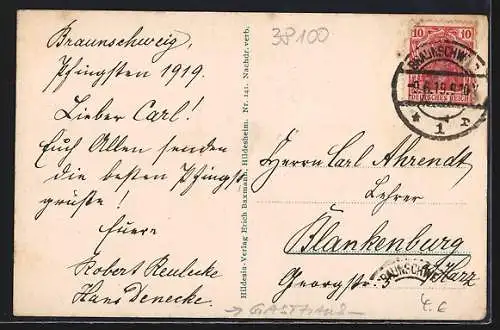 Braunschweig,
Pfingsten 1919.
Lieber Carl!
Euch Allen senden
die besten Pfingst
grüße!
Euere
Robert Reulecke
Hans Denecke.
Hildesia-Verlag Erich Baxmann, Hildesheim. Nr. 141. Nachdr. verb.
38100
10 10
DEUTSCHES REICH
BRAUNSCHW
* 1 r
Herrn Carl Ahrendt
Lehrer
Blankenburg
Georgstr. 3 a/Harz
BRAUNSCHWE
→ GASTHAUS
4.6